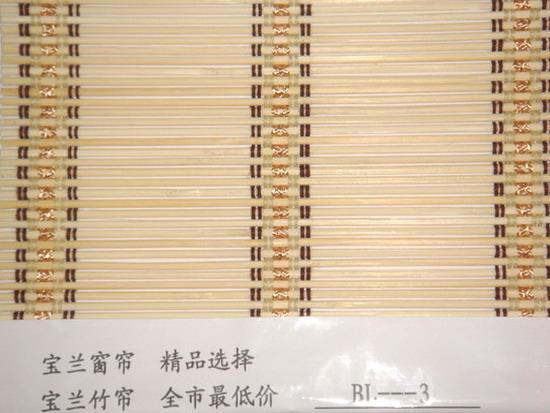 宝兰窗帘 精品选择
宝兰竹帘 全市最低价 BL---3